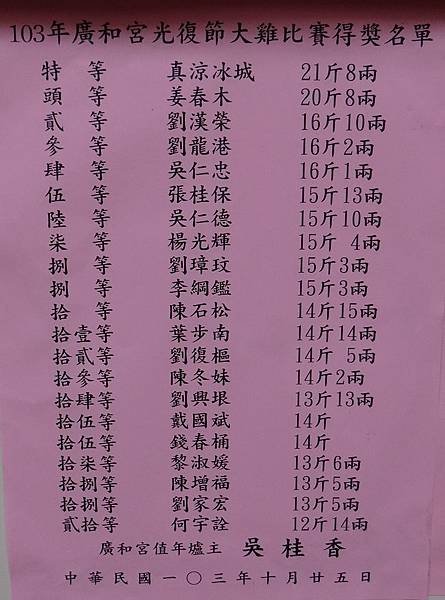 103年廣和宮光復節大雞比賽得獎名單
特 等 真涼冰城 21斤8兩
頭 等 姜春木 20斤8兩
貳 等 劉漢榮 16斤10兩
參 等 劉龍港 16斤2兩
肆 等 吳仁忠 16斤1兩
伍 等 張桂保 15斤13兩
陸 等 吳仁德 15斤10兩
柒 等 楊光輝 15斤 4兩
捌 等 劉璋玟 15斤3兩
捌 等 李綱鑑 15斤3兩
拾 等 陳石松 14斤15兩
拾壹等 葉步南 14斤14兩
拾貳等 劉復樞 14斤 5兩
拾參等 陳冬妹 14斤2兩
拾肆等 劉興垠 13斤13兩
拾伍等 戴國斌 14斤
拾伍等 錢春桶 14斤
拾柒等 黎淑媛 13斤6兩
拾捌等 陳增福 13斤5兩
拾捌等 劉家宏 13斤5兩
貳拾等 何宇詮 12斤14兩
廣和宮值年壚主 吳桂香
中華民國一〇三年十月廿五日